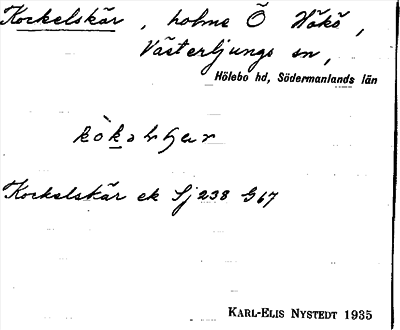 Kockelskär, holme Ö Hökö,
Västerljungs sn,
Hölebo hd, Södermanlands län
Kockelskär ek Sj 238 G67
KARL-ELIS NYSTEDT 1935